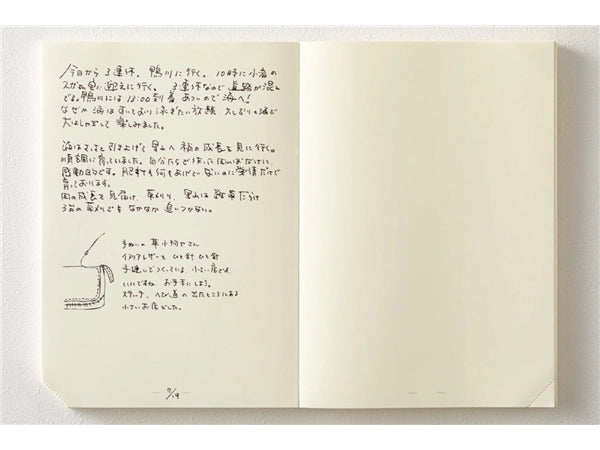 今日から3連休。鴨川に行く。10時に小沓の
スガぬ宅に迎えに行く。3連休なので道路が混ん
でる。鴨川には13:00到着。あついので海へ!
なぜか海はすいており泳ぎたい放題、久しぶりの海で
大はしゃぎして楽しみました。
海はさっさと引き上げて里山へ稲の成長を見に行く。
順調に育っていました。自分たちで作った田んぼだけに、
感動ものです。肥料も何もあげていないのに愛情だけで
育っております。
田の成長を見届け、草刈り、里山は雑草だらけ
3台の草刈りでもなかなか追いつかない。
手ぬいの革小物やさん
イタリアレザーとひと針ひと針
手縫いでつくっている小さい店です。
いいですね、お手本にしよう。
ステッチ、へび道の出たところにある
小さいお店でした。
7/19